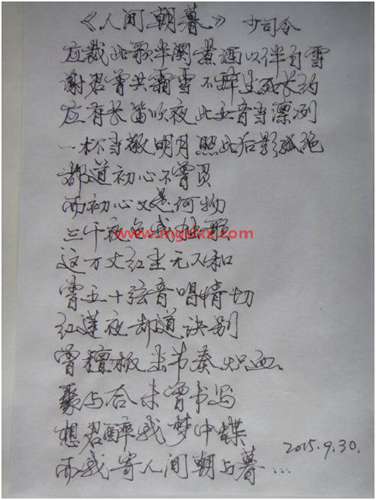 《人间朝暮》 少司令
应裁此歌半阕煮酒以伴白雪
谢君曾共霜雪不醉生死长约
应有长笛吹夜此音当凛冽
一杯当敬明月照此后影孤绝
都道初心不曾灭
而初心又是何物
三千夜色成挽歌
www.mgyxz.com
这万丈红尘无人和
五十弦音唱情切
红莲夜却道诀别
曾檀板来节奏炽血
聚与合未曾书写
想君醉我梦中蝶
而我寄人间朝与暮…
2015.9.30.